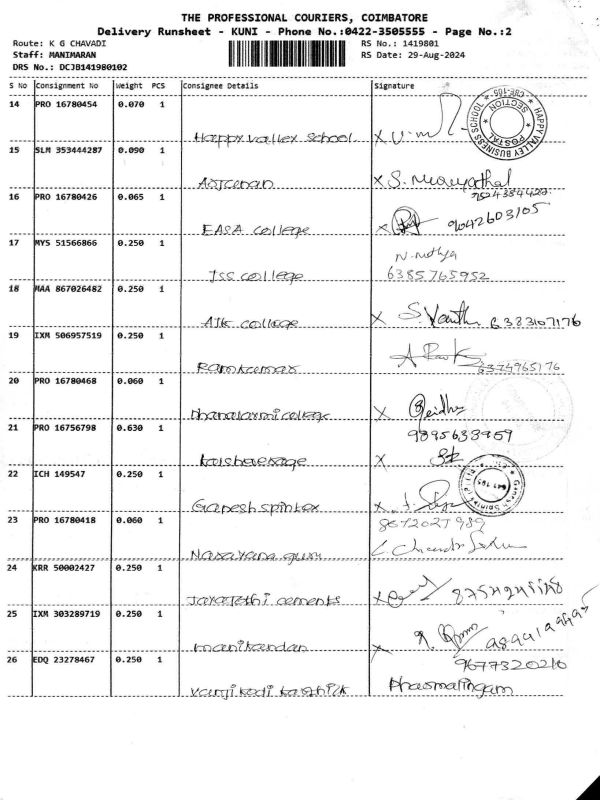 THE PROFESSIONAL COURIERS, COIMBATORE
Delivery Runsheet - KUNI - Phone No.:0422-3505555 - Page No.:2
Route: K G CHAVADI RS No.: 1419801
Staff: MANIMARAN RS Date: 29-Aug-2024
DRS No.: DCJB141980102
S No Consignment No Weight PCS Consignee Details Signature
14 PRO 16780454 0.070 1
Happy valley school
HAPPY VALLEY BUSINESS SCHOOL * CBE-105 * POSTAL SECTION
15 SLM 353444287 0.090 1
16 PRO 16780426 0.065 1
EASA college 9042603105
17 MYS 51566866 0.250 1 N. nithya
JSS college 6385765952
18 MAA 867026482 0.250 1
AJK college 6383107176
19 IXM 506957519 0.250 1
Ramkumar 6374965176
20 PRO 16780468 0.060 1
Dhanalaxmi college
21 PRO 16756798 0.630 1 9895633959
22 ICH 149547 0.250 1
Ganesh spintex
23 PRO 16780418 0.060 1
Narayana guru
24 KRR 50002427 0.250 1
cements
25 IXM 303289719 0.250 1
manikandan
26 EDQ 23278467 0.250 1 9677320210